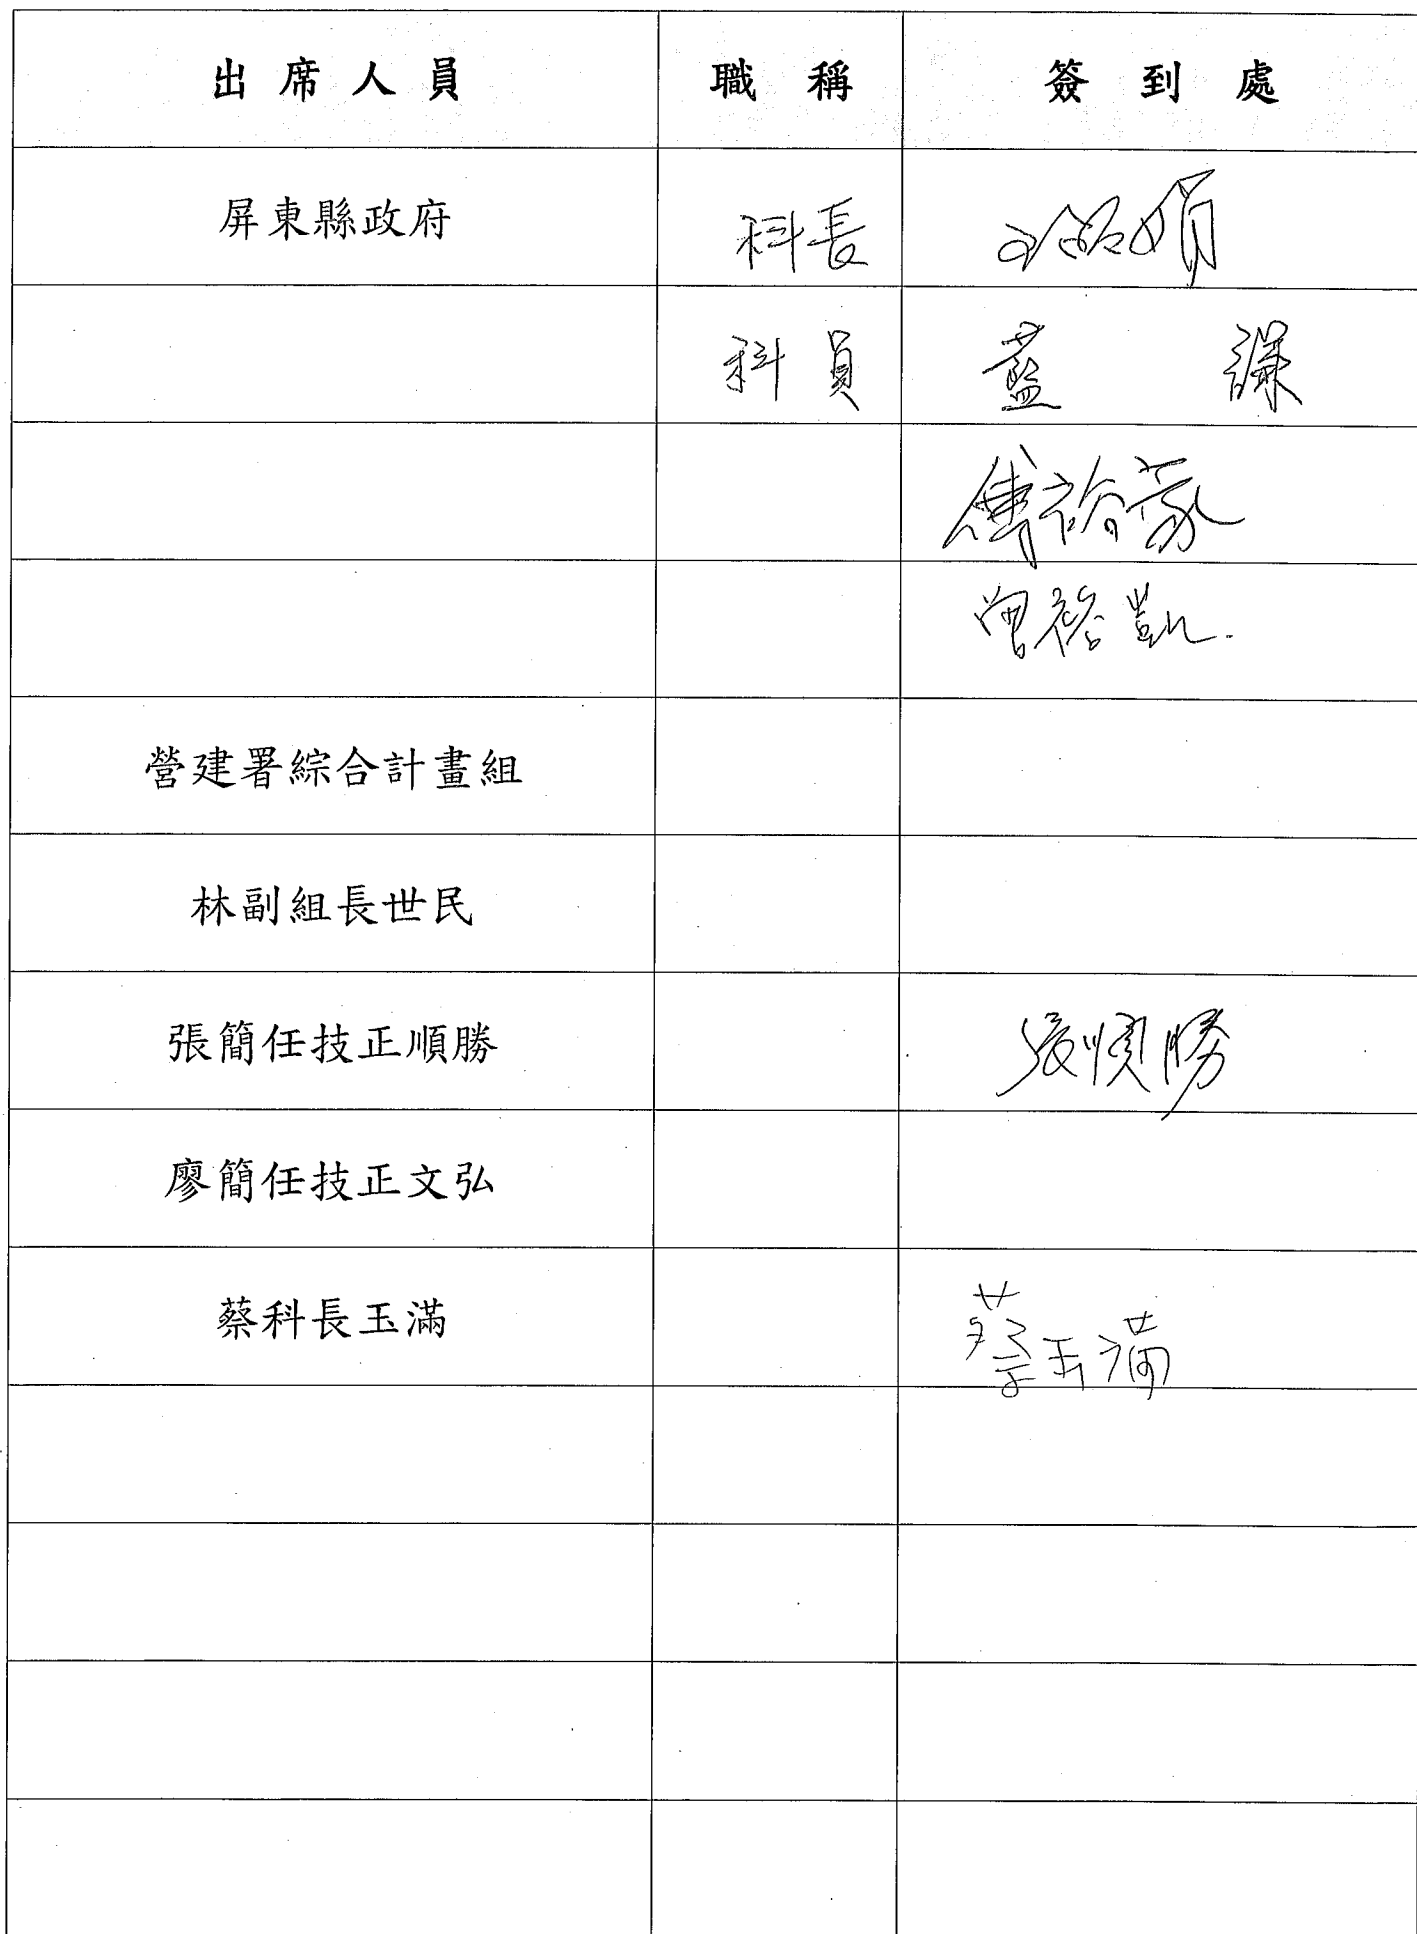 出席人員 職稱 簽到處
屏東縣政府 科長
科員 藍 謀
傅裕豪
曾裕凱
營建署綜合計畫組
林副組長世民
張簡任技正順勝 張順勝
廖簡任技正文弘
蔡科長玉滿 蔡玉滿